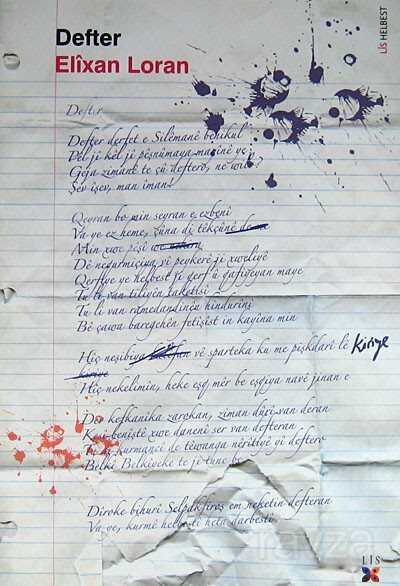 Defter
Elîxan Loran
LîS HELBEST
Defter
Defter derfet e Silêmanê benikul
Pel jî kel ji pêşnûmaya marinê ye
Geja zimanê te çû defterê, ne wilo?
Şev işev, man iman!
Qeyran bo min seyran e ezbenî
Va ye ez heme, çûna di têkçûnê
Min xwe pişî we
Dê negurmiçiya vî peykerê ji xweliyê
Qerfiye ye helbest ji qerf û gafiyeyan maye
Tu li van tiliyên taketisî
Tu li van ramedandinên hundurînî
Bê çawa baregehên fetîşist in kayina min
Hiç neşibiya vê sparteka ku me pişkdarî lê Kiriye
kiriye
Hiç nekelimin, heke eşq mêr be eşqiya navê jinan e
Der kefkanika zarokan, ziman dûçî van deran
benîştê xwe danenî ser van defteran
kurmancî de têwanga nêrîtiyê yî defterê
Belkî Belkiyeke te jî tune be
Diroke bihurî Selpakfiroş em neketin defteran
Va ye, kurmê helbestî heta darbestî
LîS